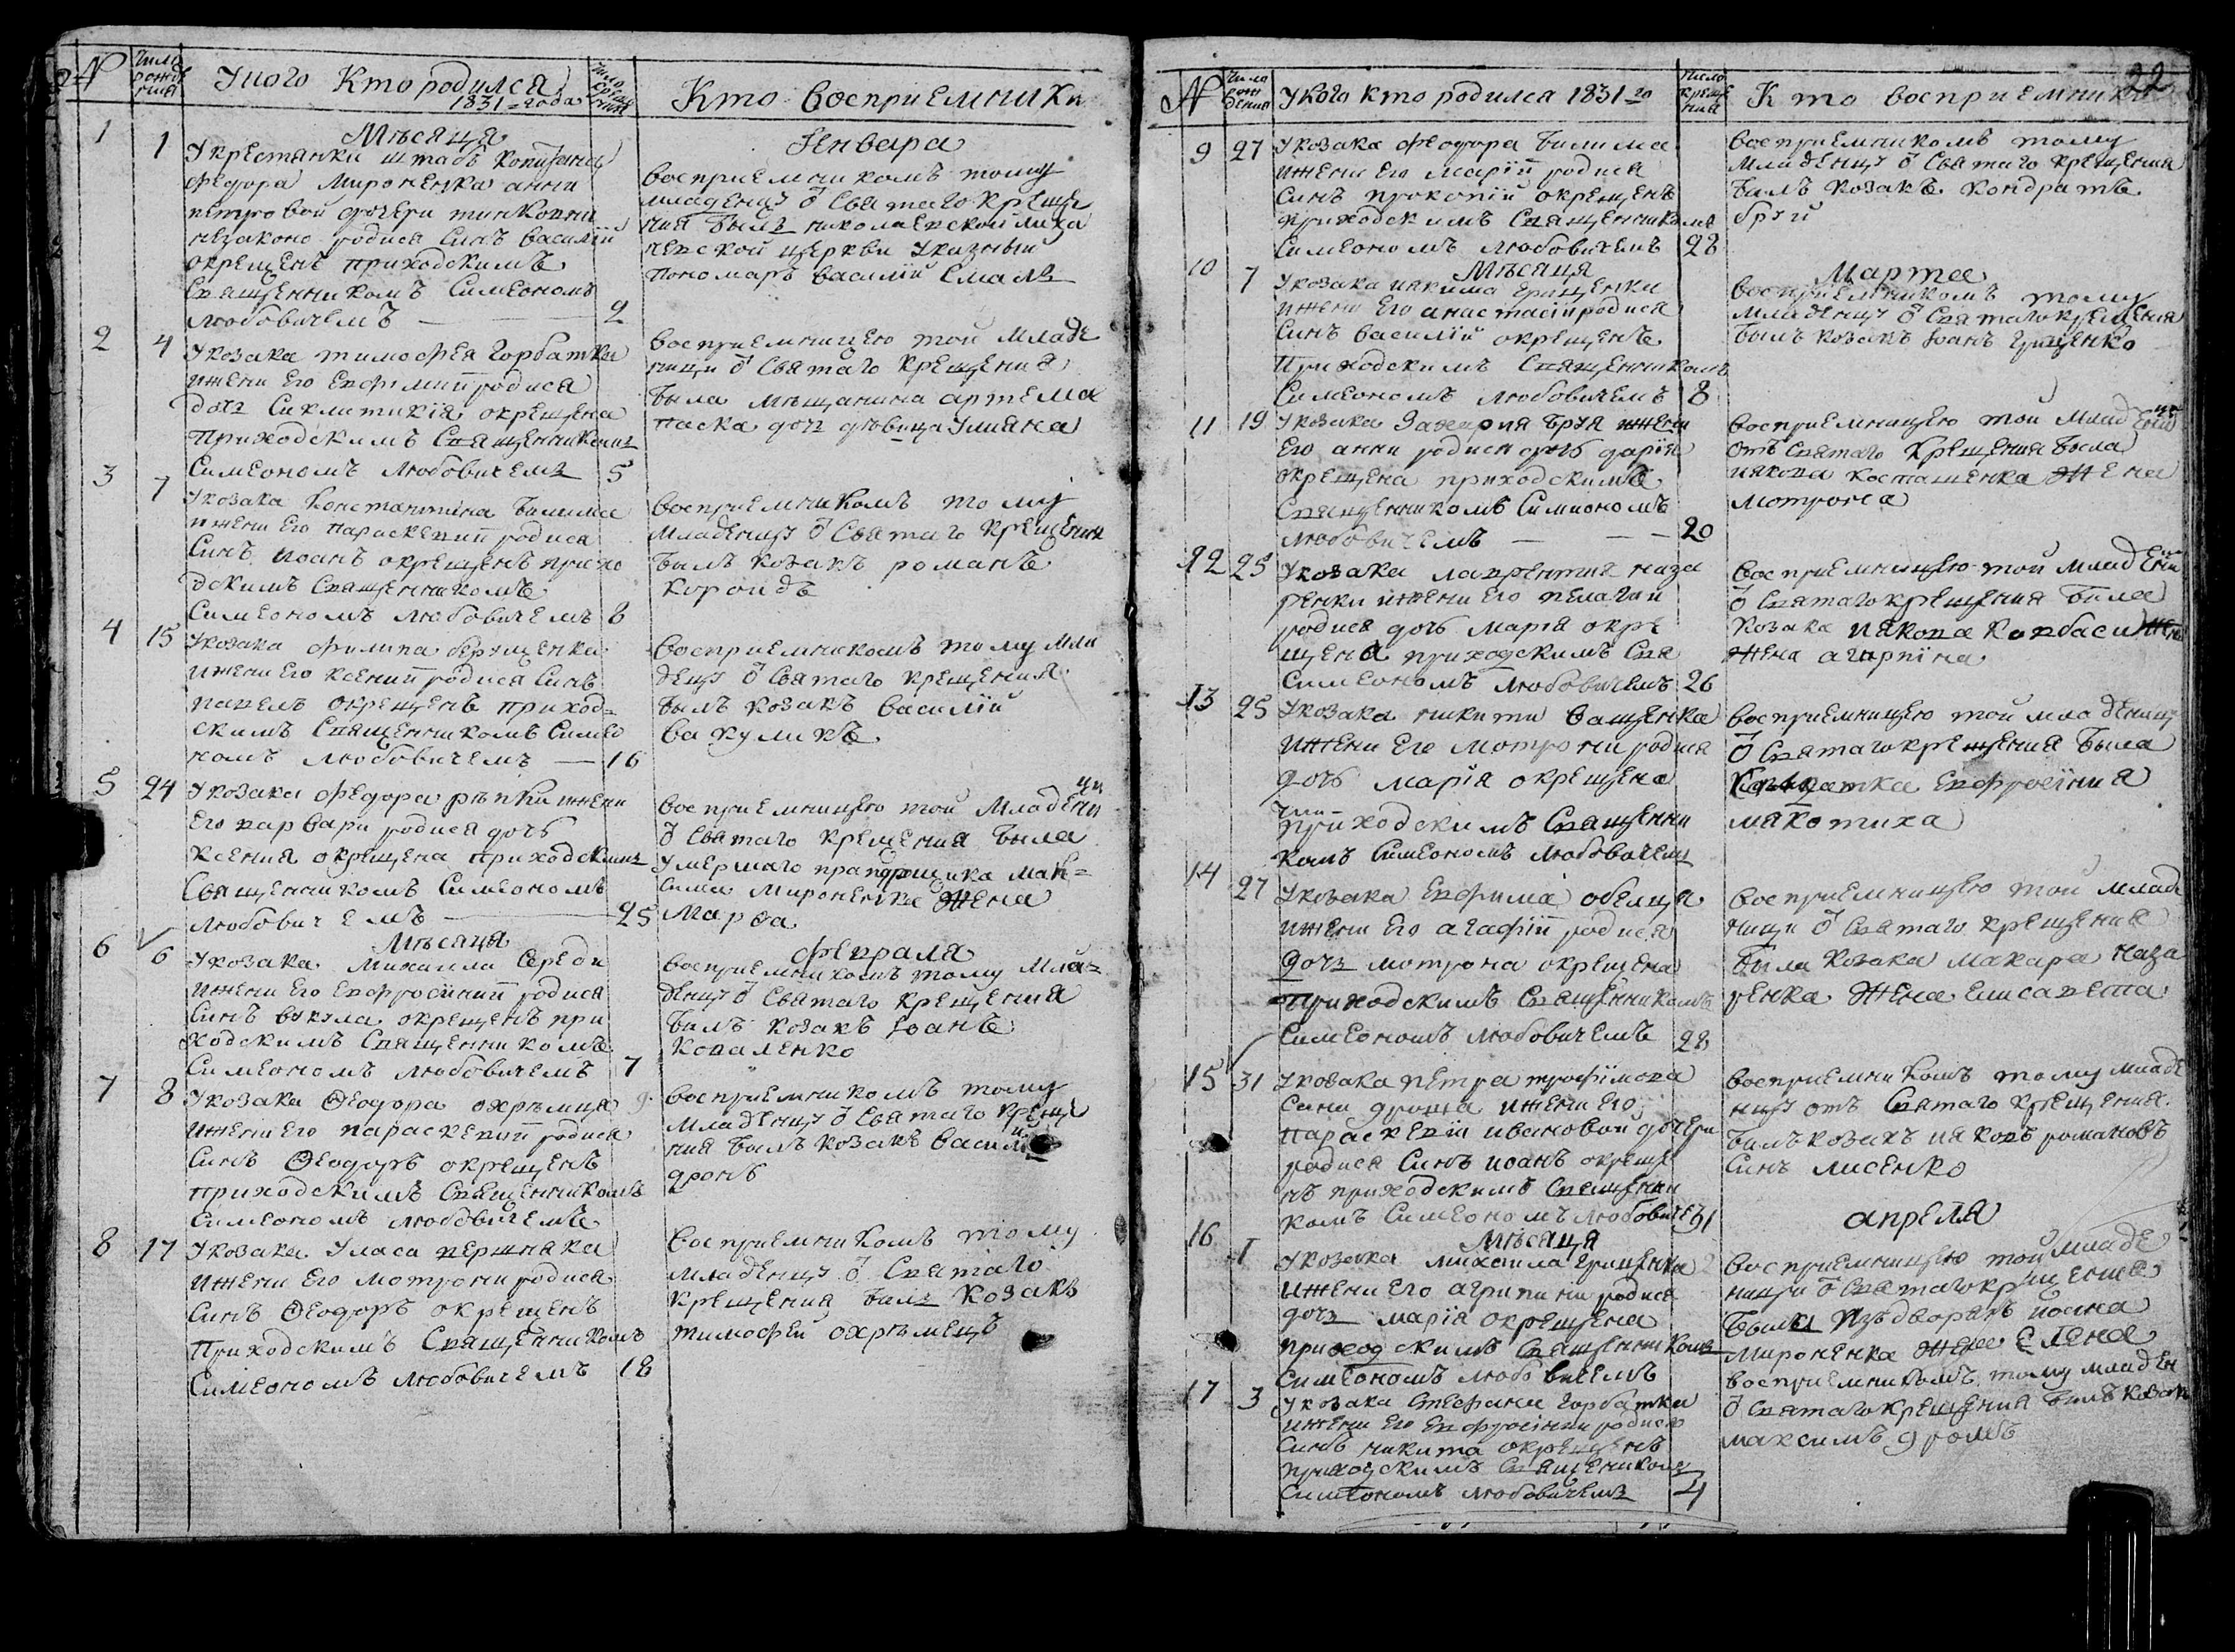 №
Число рожде ния
У кого Кто родился
1831-года
Число креще ния
Кто восприемники
Мѣсяца Генваря
1
1
У крестянки штабъ Капитана
Федора Мироненка анни
петровой дочери
незаконо родися Синъ василій
окрещенъ приходскимъ
Священникомъ Симеономъ
любовичемъ — 2
восприемникомъ тому
младенцу ѿ Святаго Креще
ния былъ николаевской
церкви Указный
пономаръ василій
2
4
У козака тимофея Горбатка
и жени Его Евфимии родися
дочъ Синклитикія окрещена
Приходскимъ Священникомъ
Симеономъ любовичемъ 5
восприемницею той Младе
ници ѿ Святаго Крещения
была мѣщанина артема
паска дочъ дѣвица Улияна
3
7
У козака Константина билима
и жени Его Параскевии родися
Синъ иоанъ окрещенъ прихо
дскимъ Священникомъ
Симеономъ любовичемъ 8
восприемникомъ тому
младенцу ѿ Святаго Крещения
былъ козакъ романъ
4
15
У козака филипа брущенка
и жени Его Ксении родися Синъ
павелъ окрещенъ приход=
скимъ Священникомъ Симео
номъ любовичемъ — 16
восприемникомъ тому мла
денцу ѿ Святаго крещения
былъ козакъ василій
вакуликъ
5
24
У козака Федора рѣпки жени
Его варвари родися дочъ
Ксения окрещена приходскимъ
Священникомъ Симеономъ
любовичемъ — 25
восприемницею той Младени
ци
ѿ Святаго крещения была
Умершаго прапорщика Мак=
сима Мироненка Жена
Марѳа
Мѣсяца Февраля
6
6
У козака Михаила Середи
и жени Его Евфросинии родися
Синъ вукула окрещенъ при
ходскимъ Священникомъ
Симеономъ любовичемъ 7
восприемникомъ тому Мла=
денцу ѿ Святаго крещения
былъ козакъ Іоанъ
Коваленко
7
8
У козака Ѳеодора охрѣмца 9.
и жени Его параскевии родися
Синъ Ѳеодоръ окрещенъ
приходскимъ Священникомъ
Симеономъ любовичемъ
восприемникомъ тому
младенцу ѿ Святаго Креще
ния былъ козакъ васил
дронъ
8
17
У козака Уласа першака
и жени Его Мотрони родися
Синъ Ѳеодоръ окрещенъ
Приходскимъ Священникомъ
Симеономъ любовичемъ 18
восприемникомъ тому
младенцу ѿ Святаго
крещения былъ козакъ
тимофей охрѣмецъ
22
№
Число рож дения
У кого кто родился 1831 го
Число креще ния
Кто восприемники
9
27
У козака Феодора билима
и жени Его марии родися
Синъ прокопій окрещенъ
приходскимъ Священникомъ
Симеономъ любовичемъ 28
восприемникомъ тому
младенцу ѿ Святаго крещения
былъ козакъ кондратъ
бруй
Мѣсяца Марта
10
7
У козака иякима грищенки
и жени Его анастасіи родися
Синъ василій окрещенъ
Приходскимъ Священникомъ
Симеономъ любовичемъ 8
восприемникомъ тому
младенцу ѿ Святаго крещения
былъ козакъ Іоанъ Грищенко
11
19
У козака Захария бруя жени
Его анни родися дочъ дарія
окрещена приходскимъ
Священникомъ Симиономъ
любовичемъ — 20
восприемницею той Младени
цы
отъ Святаго Крещения была
иякова косташенка Жена
мотрона
12
25
У козака лаврентия наза
ренки и жени Его пелагаи
родися дочъ мария окре
щена приходскимъ Свя
Симеономъ любовичемъ 26
восприемницею той младени
ѿ Святаго крещения была
козака иякова Ковбаси
жена агарпина
13
25
У козака никити ващенка
и жени Его мотрони родися
дочъ марія окрещена
приходскимъ Священни
комъ Симеономъ любовичемъ
восприемницею той младениц
ѿ Святаго крещения была
Евфросиния
мякотиха
14
27
У козака Евфима обелца
и жени Его агафіи родися
дочъ мотрона окрещена
Приходскимъ Священникомъ
Симеономъ любовичемъ 28
восприемницею той младе
ници ѿ Святаго крещения
была козака макара наза
ренка Жена елисавета
15
31
У козака петра трофимова
Сина дрона и жени Его
параскевіи ивановой дочери
родися Синъ иоанъ окреще
нъ приходскимъ Священни
комъ Симеономъ любовичемъ 31
восприемникомъ тому младе
нцу отъ Святаго крещения
былъ козакъ ияковъ романовъ
Синъ лисенко
Мѣсяца апреля
16
1
У козака михаила грищенка 2
и жени Его агрипини родися
дочъ марія окрещена
приходскимъ Священникомъ
Симеономъ любовичемъ
восприемницею той младе
ници ѿ Святаго крещения
была Изъ дворянъ иоана
Мироненка жена Елена
17
3
У козака Стефана горбатка
и жени Его Евфросинии родися
Синъ никита окрещенъ
приходскимъ Священикомъ
Симеономъ любовичемъ 4
восприемникомъ тому младен
ѿ Святаго крещения былъ козакъ
максимъ дронъ